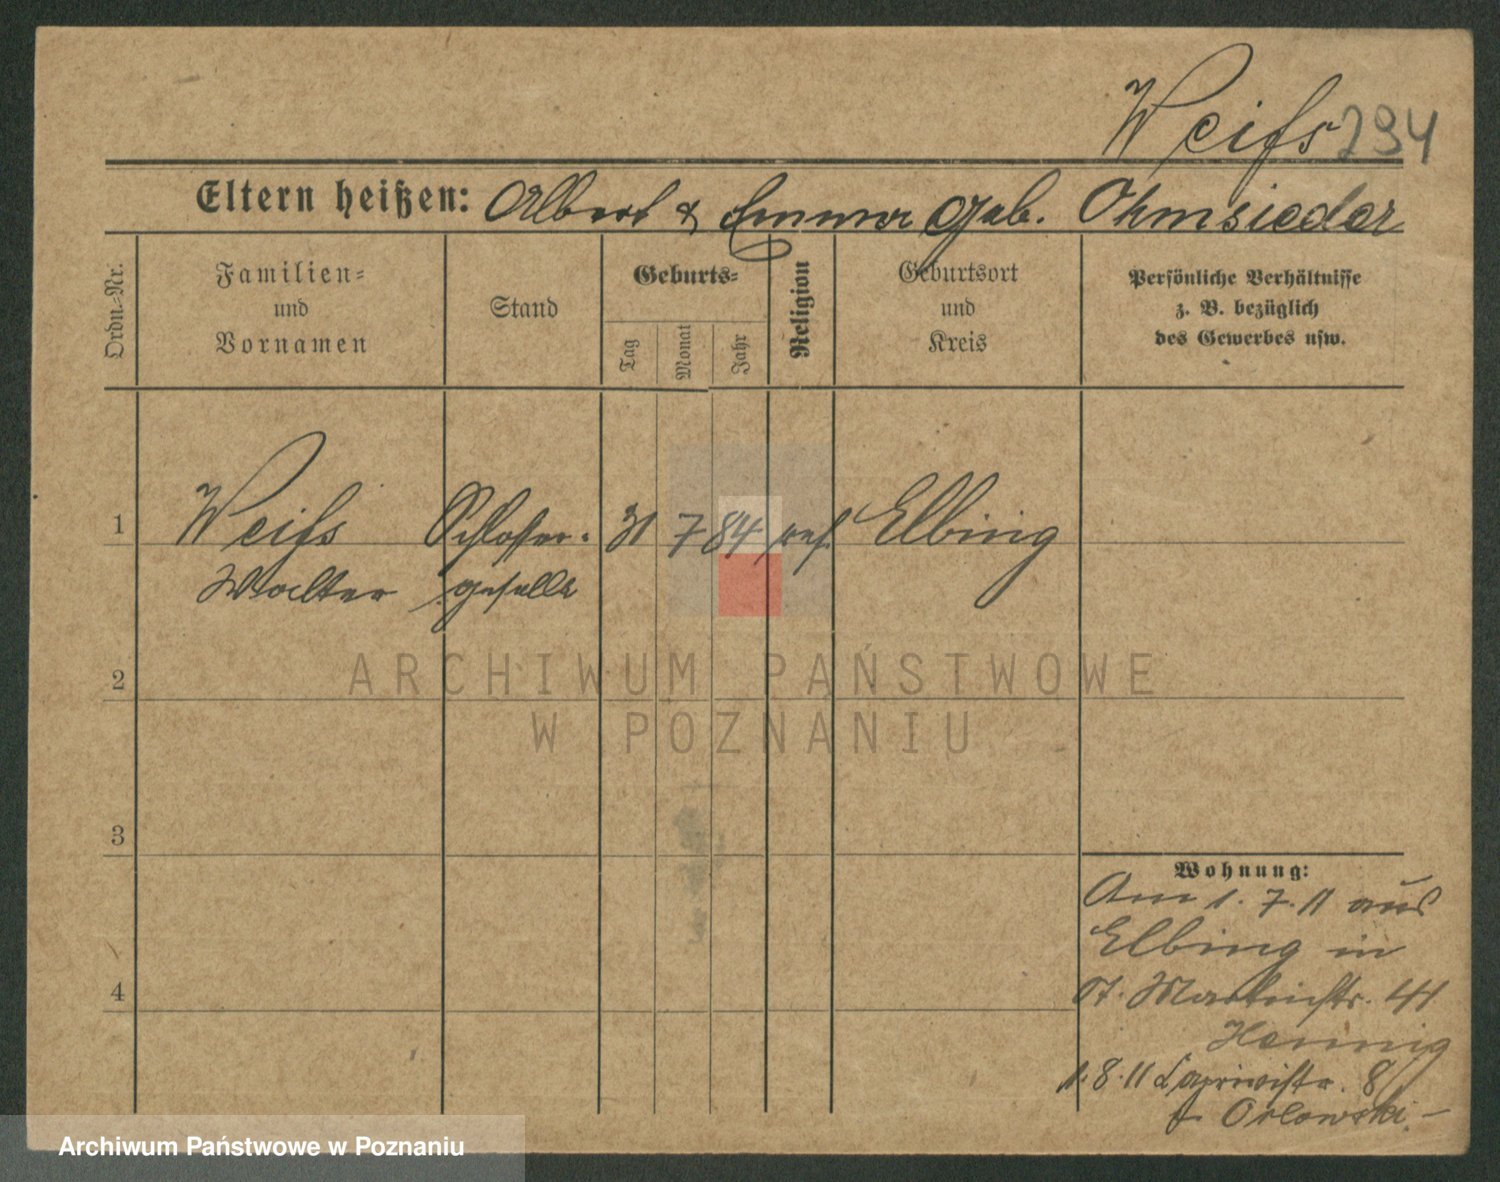 Weiſs 294
Eltern heißen: Albert & Emma geb. Ohmsieder
Ordn.-Nr.
Familien-
und
Vornamen
Stand
Geburts-
Tag
Monat
Jahr
Religion
Geburtsort
und
Kreis
Persönliche Verhältnisse
z. B. bezüglich
des Gewerbes usw.
1 Weiſs Schlosser- 31 7 84 ref. Elbing
Walter geselle
2
3
4
ARCHIWUM PAŃSTWOWE
W POZNANIU
Wohnung:
Am 1. 7. 11 aus
Elbing in
St. Martinstr. 44
Hennig
1. 8. 11 8
Orlowski.
Archiwum Państwowe w Poznaniu